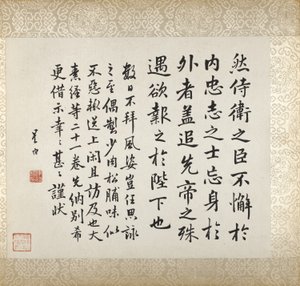 然侍衛之臣不懈於
内忠志之士忘身於
外者盖追先帝之殊
遇欲報之於陛下也
數日不拜風姿豈任思詠
之至偶製少肉松脯味似
不惡輙送上閑且訪及也大
熹经等二十一卷先納别希
更借示幸〻甚〻謹狀